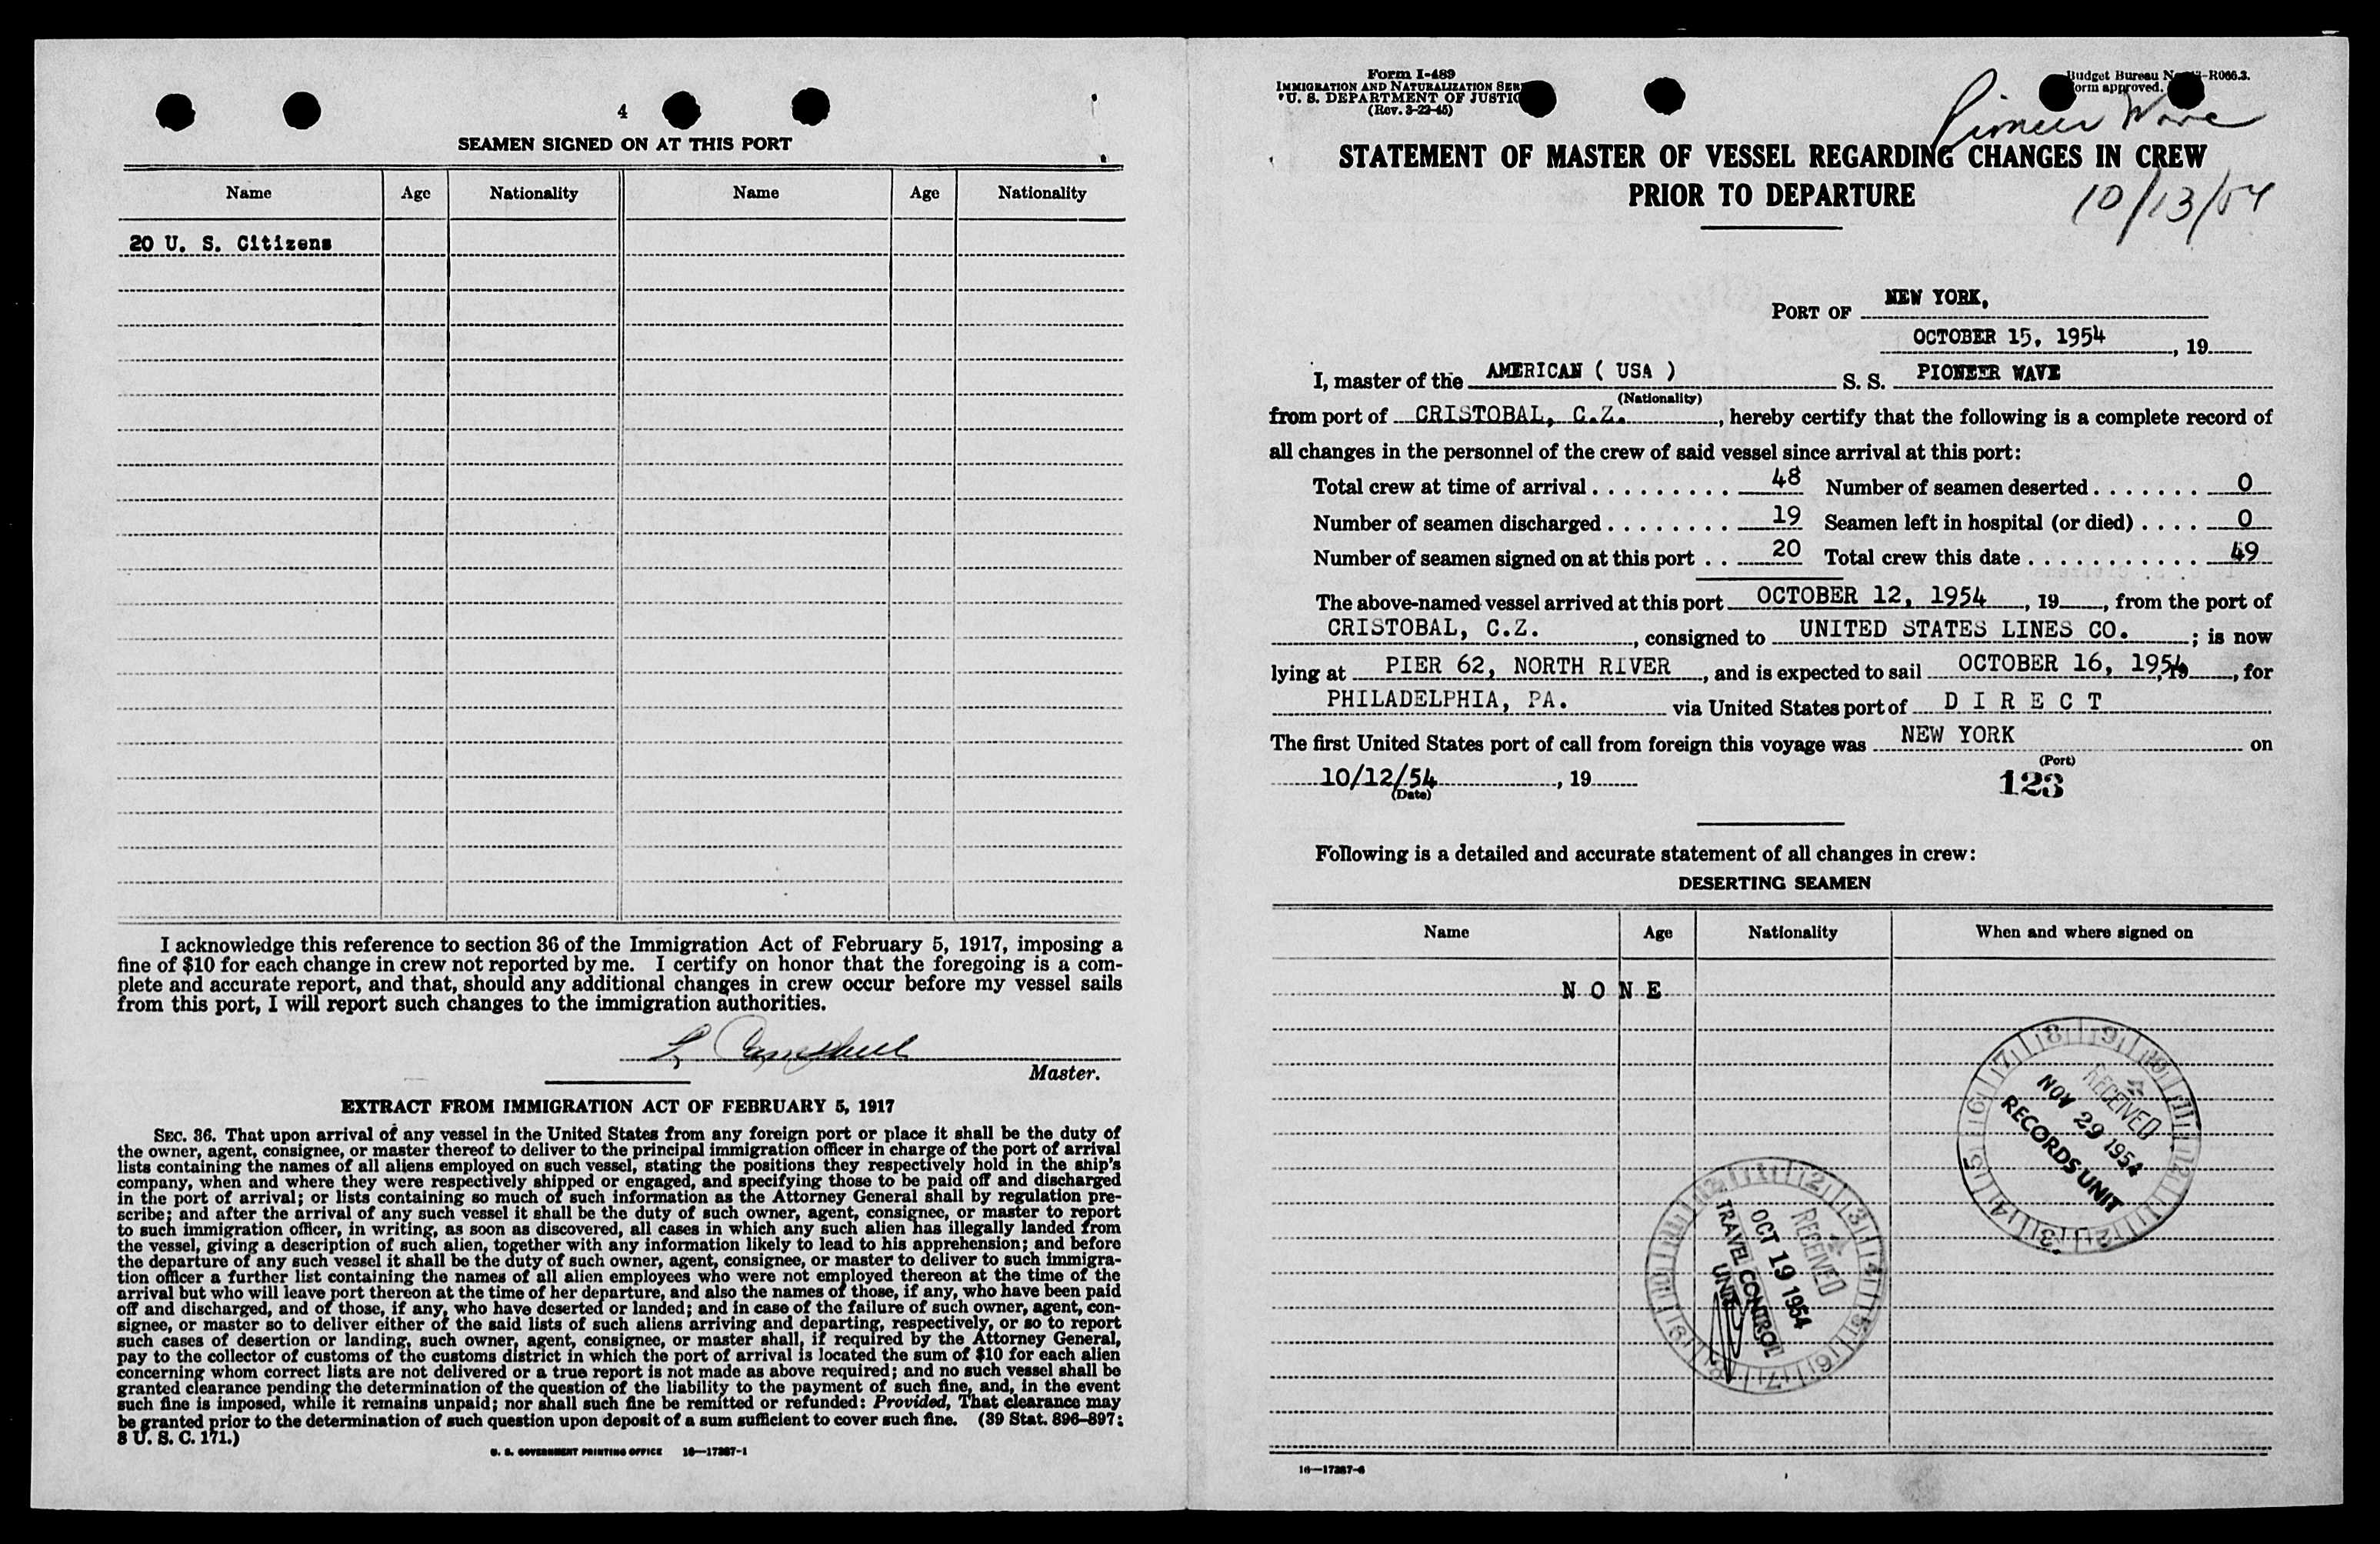 4
SEAMEN SIGNED ON AT THIS PORT
Name Age Nationality Name Age Nationality
20 U. S. Citizens
I acknowledge this reference to section 36 of the Immigration Act of February 5, 1917, imposing a
fine of $10 for each change in crew not reported by me. I certify on honor that the foregoing is a com-
plete and accurate report, and that, should any additional changes in crew occur before my vessel sails
from this port, I will report such changes to the immigration authorities.
L Campbell
Master.
EXTRACT FROM IMMIGRATION ACT OF FEBRUARY 5, 1917
SEC. 36. That upon arrival of any vessel in the United States from any foreign port or place it shall be the duty of
the owner, agent, consignee, or master thereof to deliver to the principal immigration officer in charge of the port of arrival
lists containing the names of all aliens employed on such vessel, stating the positions they respectively hold in the ship's
company, when and where they were respectively shipped or engaged, and specifying those to be paid off and discharged
in the port of arrival; or lists containing so much of such information as the Attorney General shall by regulation pre-
scribe; and after the arrival of any such vessel it shall be the duty of such owner, agent, consignee, or master to report
to such immigration officer, in writing, as soon as discovered, all cases in which any such alien has illegally landed from
the vessel, giving a description of such alien, together with any information likely to lead to his apprehension; and before
the departure of any such vessel it shall be the duty of such owner, agent, consignee, or master to deliver to such immigra-
tion officer a further list containing the names of all alien employees who were not employed thereon at the time of the
arrival but who will leave port thereon at the time of her departure, and also the names of those, if any, who have been paid
off and discharged, and of those, if any, who have deserted or landed; and in case of the failure of such owner, agent, con-
signee, or master so to deliver either of the said lists of such aliens arriving and departing, respectively, or so to report
such cases of desertion or landing, such owner, agent, consignee, or master shall, if required by the Attorney General,
pay to the collector of customs of the customs district in which the port of arrival is located the sum of $10 for each alien
concerning whom correct lists are not delivered or a true report is not made as above required; and no such vessel shall be
granted clearance pending the determination of the question of the liability to the payment of such fine, and, in the event
such fine is imposed, while it remains unpaid; nor shall such fine be remitted or refunded: Provided, That clearance may
be granted prior to the determination of such question upon deposit of a sum sufficient to cover such fine. (39 Stat. 896-897;
8 U. S. C. 171.)
U. S. GOVERNMENT PRINTING OFFICE 16—17267-1
Form I-489
IMMIGRATION AND NATURALIZATION SER
U. S. DEPARTMENT OF JUSTIC
(Rev. 3-22-45)
Budget Bureau N -R066.3.
orm approved.
Pioneer Wave
STATEMENT OF MASTER OF VESSEL REGARDING CHANGES IN CREW
PRIOR TO DEPARTURE
10/13/54
PORT OF NEW YORK,
OCTOBER 15, 1954, 19
I, master of the AMERICAN ( USA ) S. S. PIONEER WAVE
(Nationality)
from port of CRISTOBAL, C.Z., hereby certify that the following is a complete record of
all changes in the personnel of the crew of said vessel since arrival at this port:
Total crew at time of arrival . . . . . . . . . 48 Number of seamen deserted . . . . . . . 0
Number of seamen discharged . . . . . . . . 19 Seamen left in hospital (or died) . . . . 0
Number of seamen signed on at this port . . 20 Total crew this date . . . . . . . . . . . 49
The above-named vessel arrived at this port OCTOBER 12, 1954, 19, from the port of
CRISTOBAL, C.Z., consigned to UNITED STATES LINES CO.; is now
lying at PIER 62, NORTH RIVER, and is expected to sail OCTOBER 16, 1954, 19, for
PHILADELPHIA, PA. via United States port of D I R E C T
The first United States port of call from foreign this voyage was NEW YORK on
(Port)
10/12/54, 19
(Date)
123
Following is a detailed and accurate statement of all changes in crew:
DESERTING SEAMEN
Name Age Nationality When and where signed on
N O N E
RECEIVED
NOV 29 1954
RECORDS UNIT
RECEIVED
OCT 19 1954
TRAVEL CONTROL
UNIT
16—17267-6